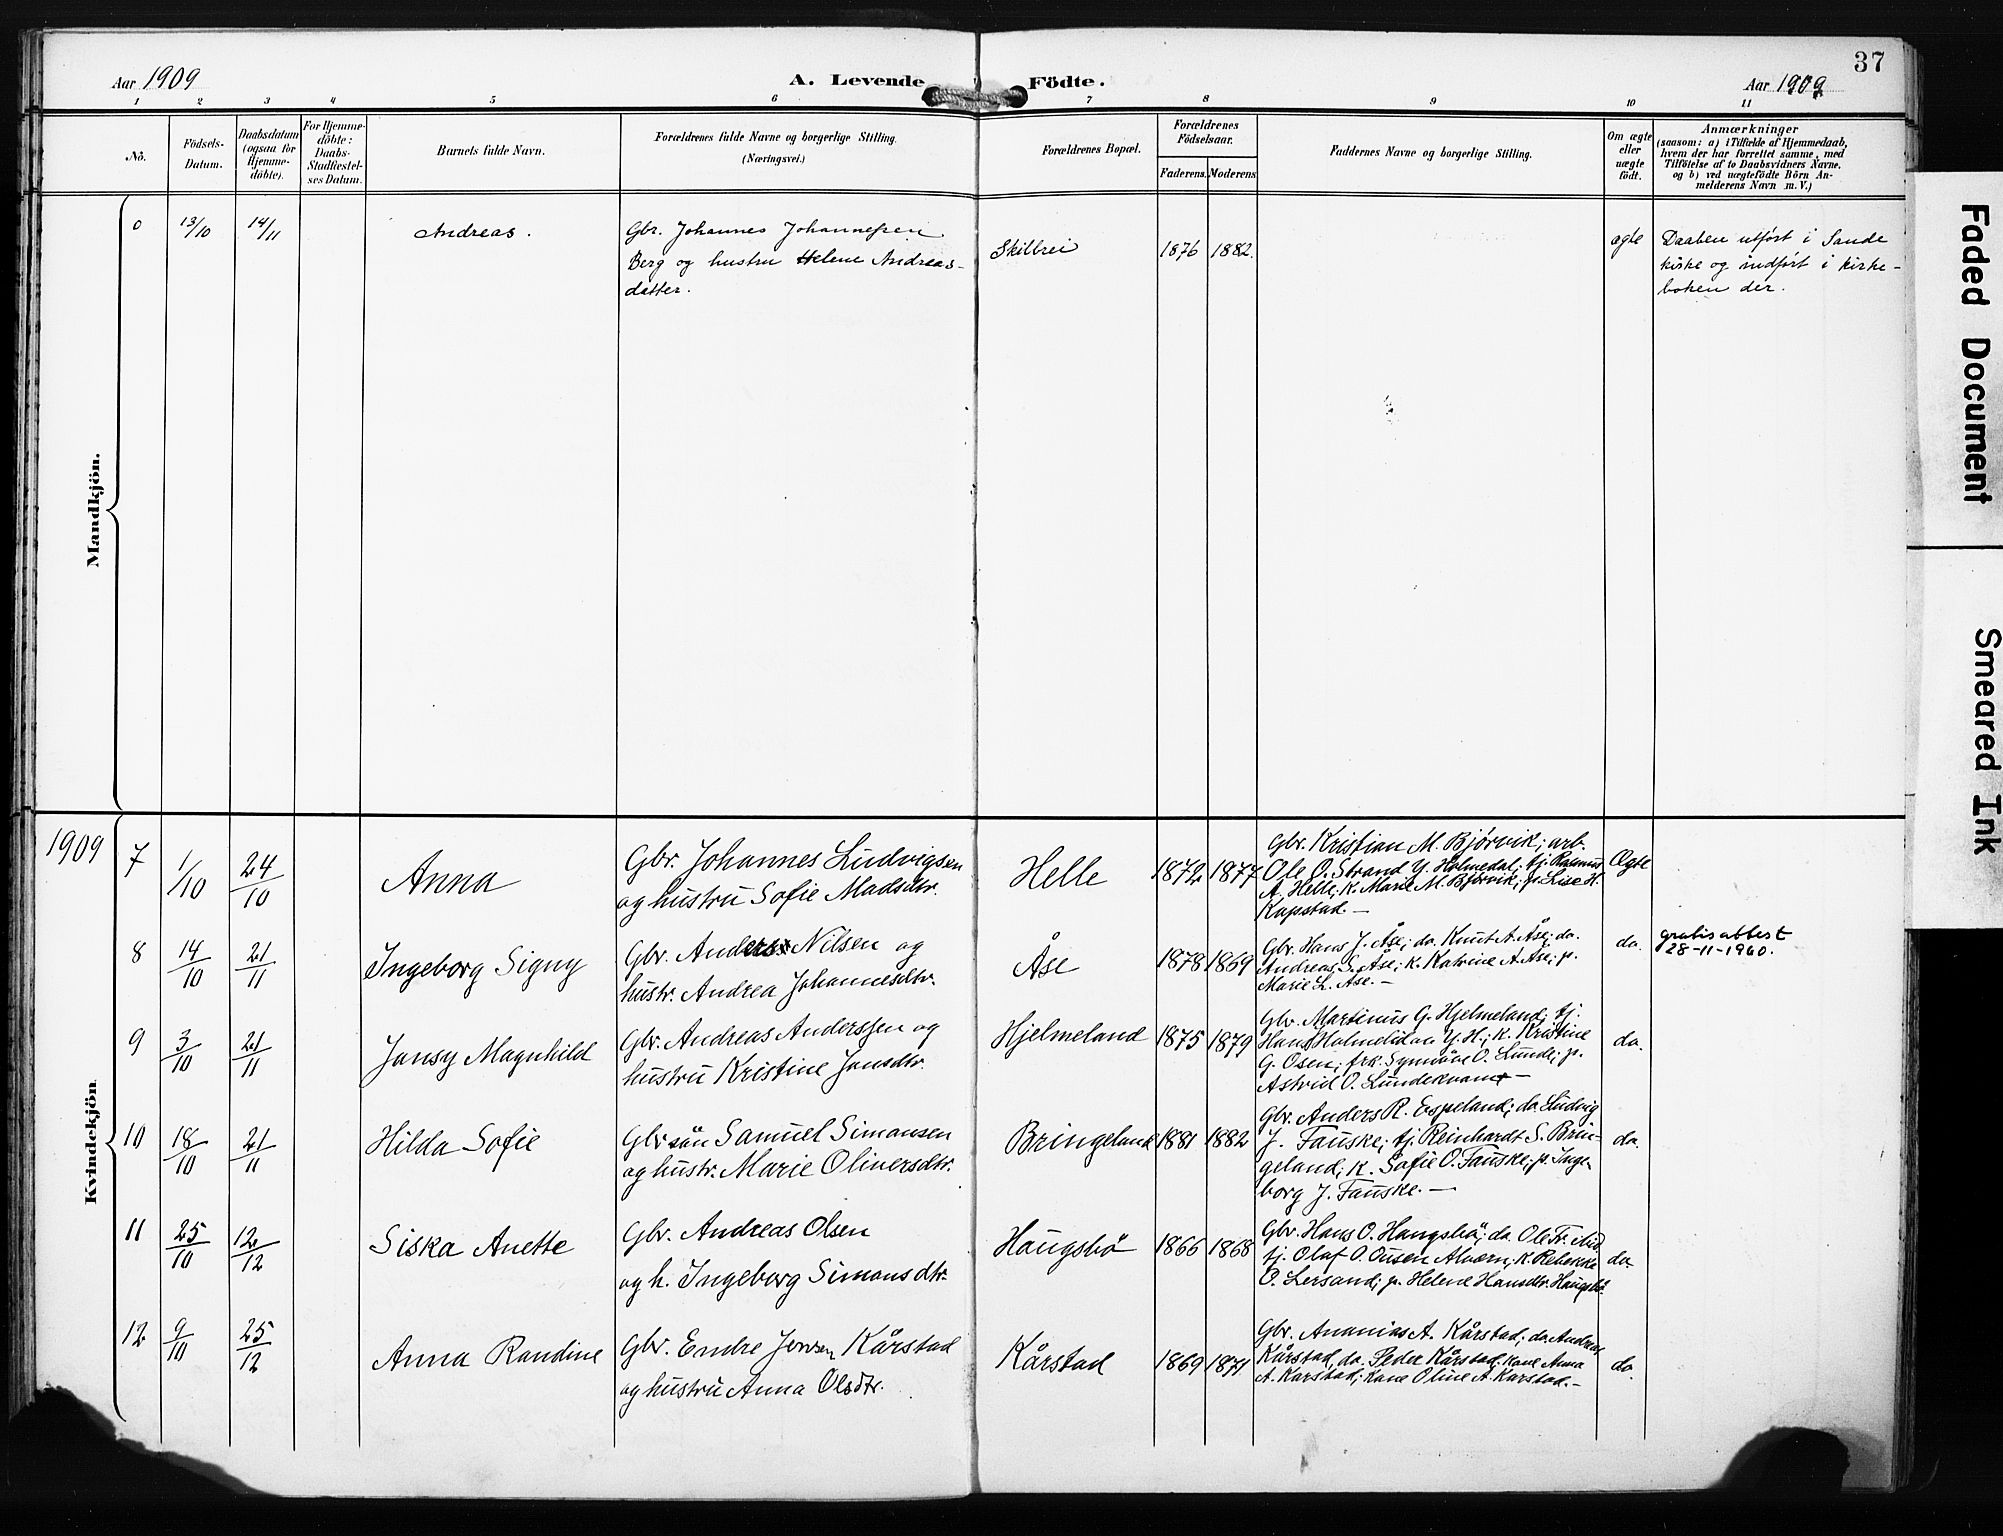 37
Aar 1909
A. Levende Födte.
Aar 1909
1 2 3 4 5 6 7 8 9 10 11
Nö.
Födsels-
Datum.
Daabsdatum
(ogsaa for
Hjemme-
döbte).
For Hjemme-
döbte:
Daabs-
Stadfæstel-
ses Datum.
Barnets fulde Navn.
Forældrenes fulde Navne og borgerlige Stilling.
(Næringsvei.)
Forældrenes Bopæl.
Forældrenes
Födselsaar.
Faderens.
Moderens
Faddernes Navne og borgerlige Stilling.
Om ægte
eller
uægte
födt.
Anmærkninger
(saasom: a) i Tilfælde af Hjemmedaab,
hvem der har forrettet samme, med
Tilföielse af to Daabsvidners Navne.
og b) ved uægtefödte Börn An-
melderens Navn m. V.)
Mandkjön.
0
13/10
14/11
Andreas.
Gbr. Johannes Johannesen
Berg og hustru Helene Andreas-
datter.
Skilbrei
1876
1882.
ægte
Daaben utført i Sande
kirke og indført i kirke-
boken der.
1909
Kvindekjön.
7
1/10
24/10
Anna
Gbr. Johannes Ludvigsen
og hustru Sofie Madsdtr.
Helle
1872
1877
Gbr. Kristian M. Bjørvik; arb.
Ole O. Strand Y. Holmedal; tj. Rasmus
A. Helle; k. Marie M. Bjørvik; p. Lise H.
Kapstad. —
Ægte
8
14/10
21/11
Ingeborg Signy
Gbr. Anders Nilsen og
hustr. Andrea Johannesdtr.
Åse
1878
1869
Gbr. Hans J. Åse; do. Knut A. Åse; do.
Andreas S. Åse; k. Katrine A. Åse; p.
Marie L. Åse. —
do.
gratisattest
28-11-1960.
9
3/10
21/11
Jansy Magnhild
Gbr. Andreas Anderssen og
hustru Kristine Jonsdtr.
Hjelmeland
1875
1879
Gbr. Martinus G. Hjelmeland; tj.
Hans Holmelid an Y. H.; k. Kristine
G. Osen; frk. Synnöve O. Lunde; p.
Astrid O. Lundekvam —
do.
10
18/10
21/11
Hilda Sofie
Gbr sön Samuel Simonsen
og hustr. Marie Oliversdtr.
Bringeland
1881
1882
Gbr. Anders R. Espeland; do. Ludvig
J. Fauske; tj. Reinhardt S. Brin-
geland; k. Sofie O. Fauske; p. Inge-
borg J. Fauske. —
do.
11
25/10
12/12
Siska Anette
Gbr. Andreas Olsen
og h. Ingeborg Simonsdtr.
Haugsbö
1866
1868
Gbr. Hans O. Haugsbö; do. Ole Tr. ibid
tj. Olaf O. Ousen Alværn; k. Rebekka
O. Lersand; p. Helene Hansdtr. Haugsbö
do.
12
9/10
25/12
Anna Randine
Gbr. Endre Jensen Kårstad
og hustru Anna Olsdtr.
Kårstad
1869
1871
Gbr. Ananias A. Kårstad; do. Andreas
Kårstad, do. Peder Kårstad. Kone Anna
A. Karstad; Kone Oline A. Karstad. —
do.
Faded Document
Smeared Ink